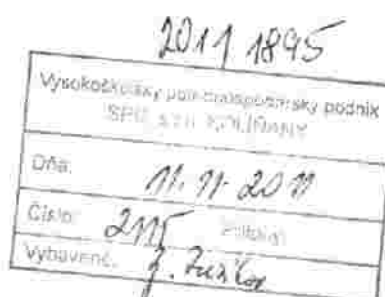 2011 1895
Vysokoškolský poľnohospodársky podnik
SPU s.r.o. KOLÍŇANY
Dňa: 11. 11. 2011
Číslo: 2115
Vybavené: